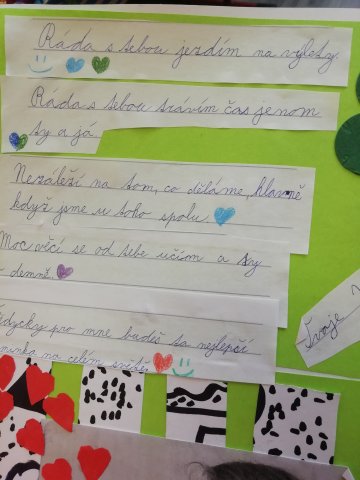 Ráda s tebou jezdím na výlety.
Ráda s tebou trávím čas jenom
ty a já.
Nezáleží na tom, co děláme, hlavně
když jsme u toho spolu.
Moc věcí se od tebe učím a ty
demně.
ždycky pro mne budeš ta nejlepší
minka na celém světě.
Tvoje